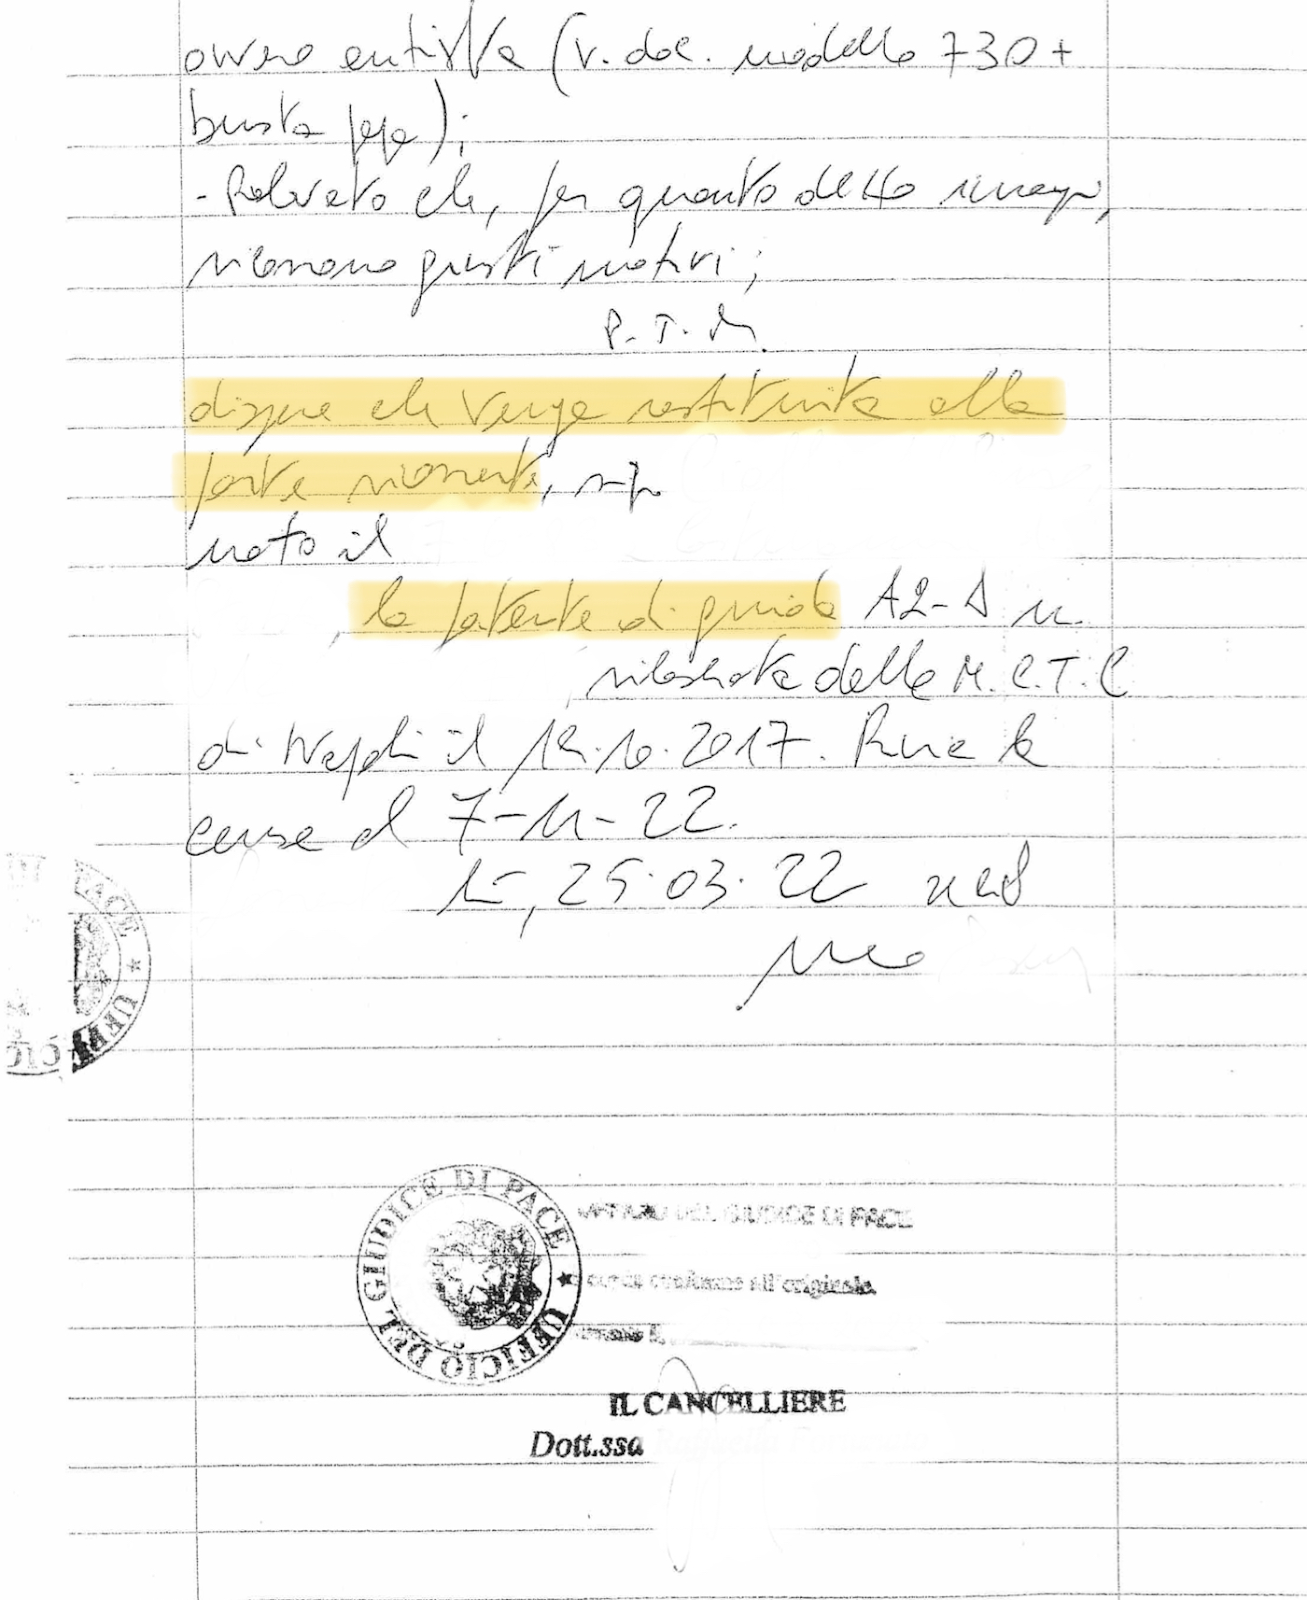 ovvero autista (v. doc. modello 730 +
busta paga);
- Rilevato che, per quanto detto innanzi,
ricorrono giusti motivi;
P.T.M.
dispone che venga restituita alla
parte ricorrente,
nato il
, la patente di guida A2-A n.
, rilasciata dalla M.C.T.C
di Napoli il 12.10.2017. Rinvia la
causa al 7-11-22.
, 25.03.22
UFFICIO DEL GIUDICE DI PACE ★
DEL GIUDICE DI PACE
copia conforme all'originale.
IL CANCELLIERE
Dott.ssa
PACE ★ UFFICIO